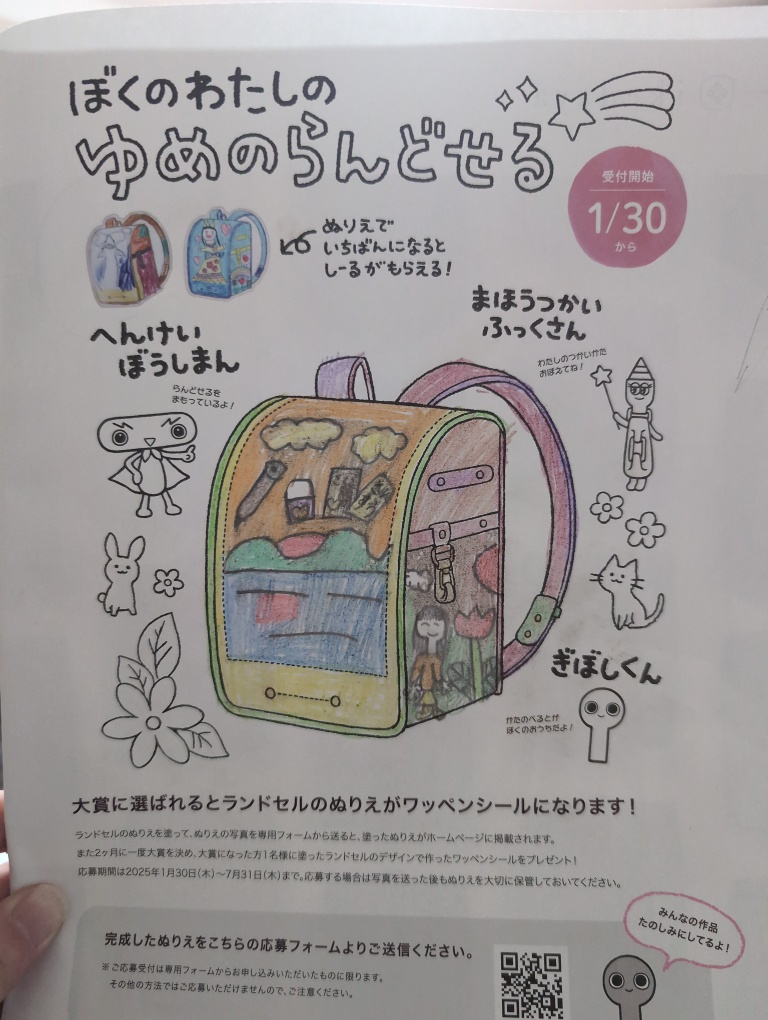 ぼくのわたしの
ゆめのらんどせる
受付開始
1/30
から
ぬりえで
いちばんになると
しーるがもらえる!
まほうつかい
ふっくさん
わたしのつかいかた
おぼえてね!
へんけい
ぼうしまん
らんどせるを
まもっているよ!
ぎぼしくん
かたのべるとが
ぼくのおうちだよ!
大賞に選ばれるとランドセルのぬりえがワッペンシールになります!
ランドセルのぬりえを塗って、ぬりえの写真を専用フォームから送ると、塗ったぬりえがホームページに掲載されます。
また2ヶ月に一度大賞を決め、大賞になった方1名様に塗ったランドセルのデザインで作ったワッペンシールをプレゼント!
応募期間は2025年1月30日(木)~7月31日(木)まで。応募する場合は写真を送った後もぬりえを大切に保管しておいてください。
みんなの作品
たのしみにしてるよ!
完成したぬりえをこちらの応募フォームよりご送信ください。
※ご応募受付は専用フォームからお申し込みいただいたものに限ります。
その他の方法ではご応募いただけませんので、ご注意ください。